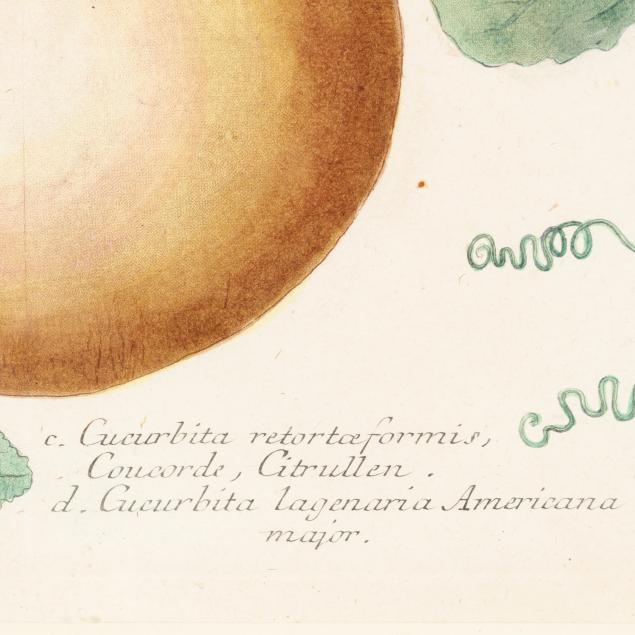 c. Cucurbita retortæformis,
Coucorde, Citrullen.
d. Cucurbita lagenaria Americana
major.